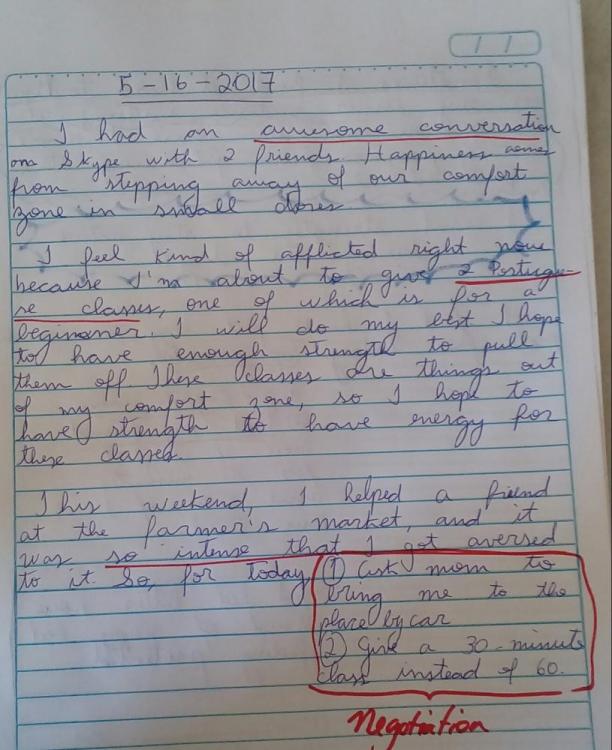 5-16-2017
I had an awesome conversation
on Skype with 2 friends. Happiness comes
from stepping away of our comfort
zone in small doses
I feel kind of afflicted right now
because I'm about to give 2 Portugue-
se classes, one of which is for a
beginner. I will do my best I hope
to have enough strength to pull
them off These classes are things out
of my comfort zone, so I hope to
have strength to have energy for
these classes.
This weekend, I helped a friend
at the farmer's market, and it
was so intense that I got aversed
to it. So, for today ① Ask mom to
bring me to the
place by car
② Give a 30-minute
class instead of 60.
Negotiation